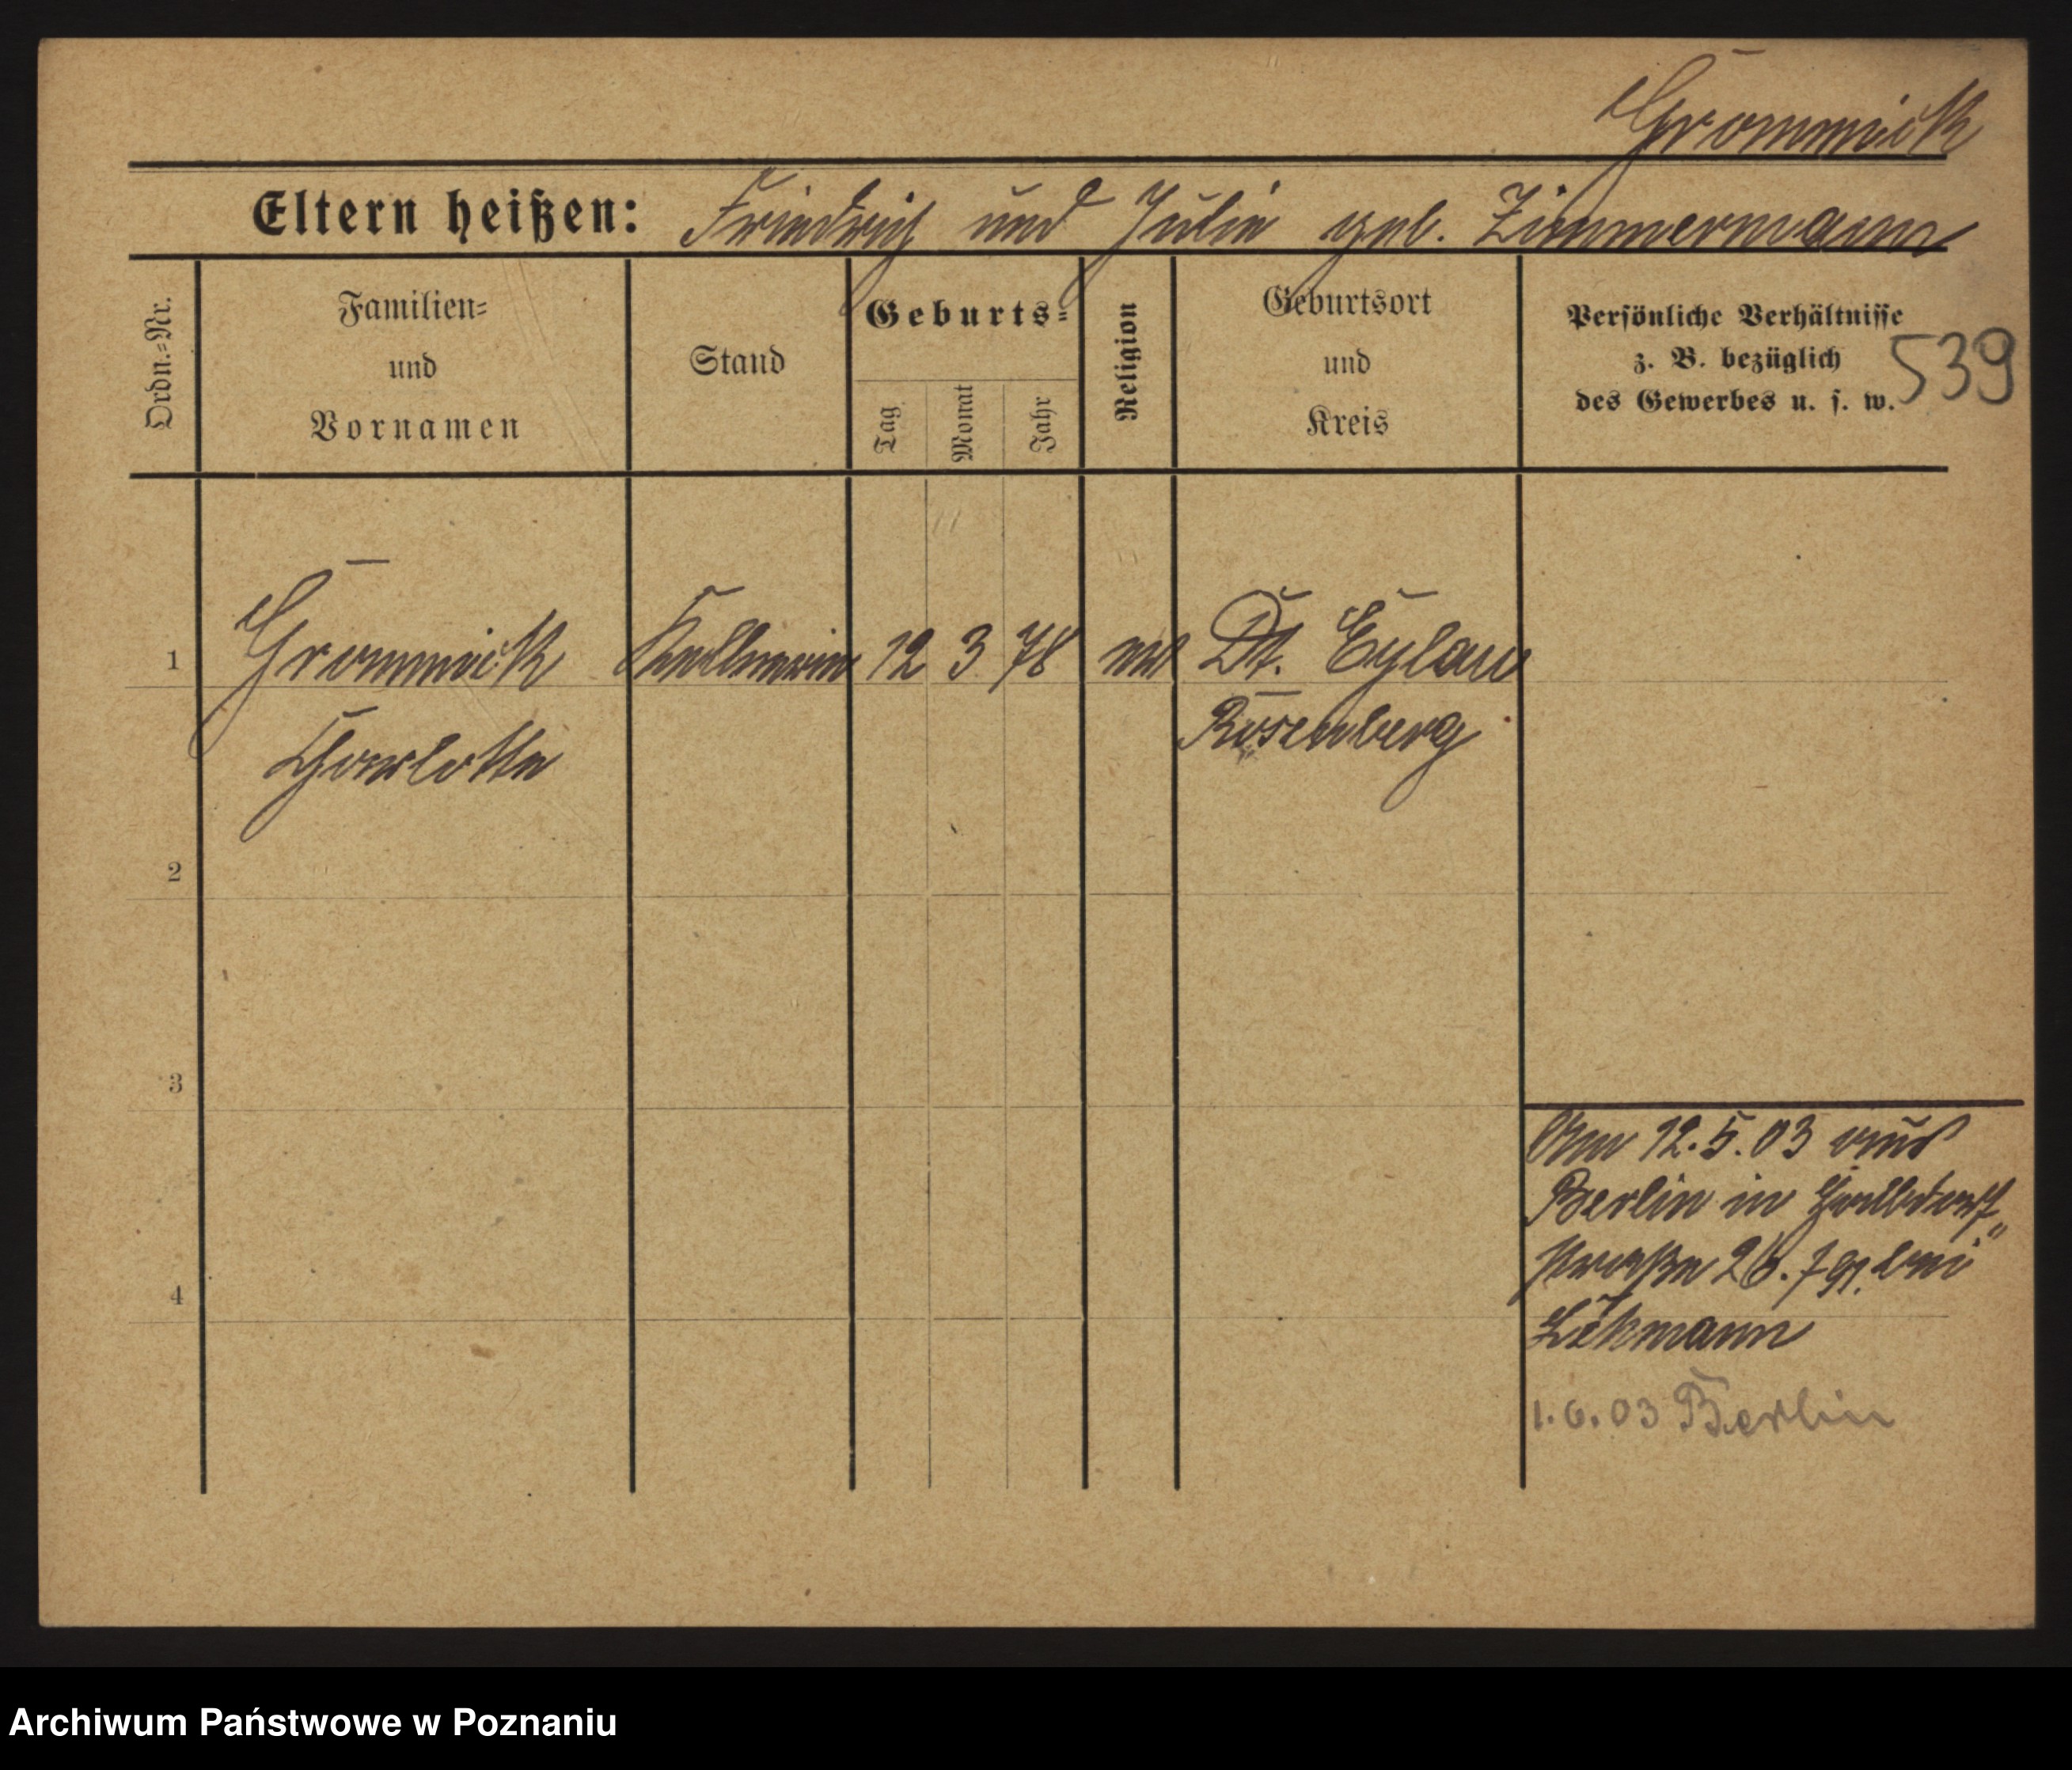 Grommick
Eltern heißen: Friedrich und Julie geb. Zimmermann
Ordn.=Nr.
Familien=
und
Vornamen
Stand
Geburts=
Tag
Monat
Jahr
Religion
Geburtsort
und
Kreis
Persönliche Verhältnisse
z. B. bezüglich
des Gewerbes u. s. w.
539
1 Grommick Kellnerin 12 3 78 ev Dt. Eylau
Charlotte Rosenberg
2
3
4
Am 12.5.03 aus
Berlin in Halbdorf„
straße 26. bei
1.6.03 Berlin
Archiwum Państwowe w Poznaniu